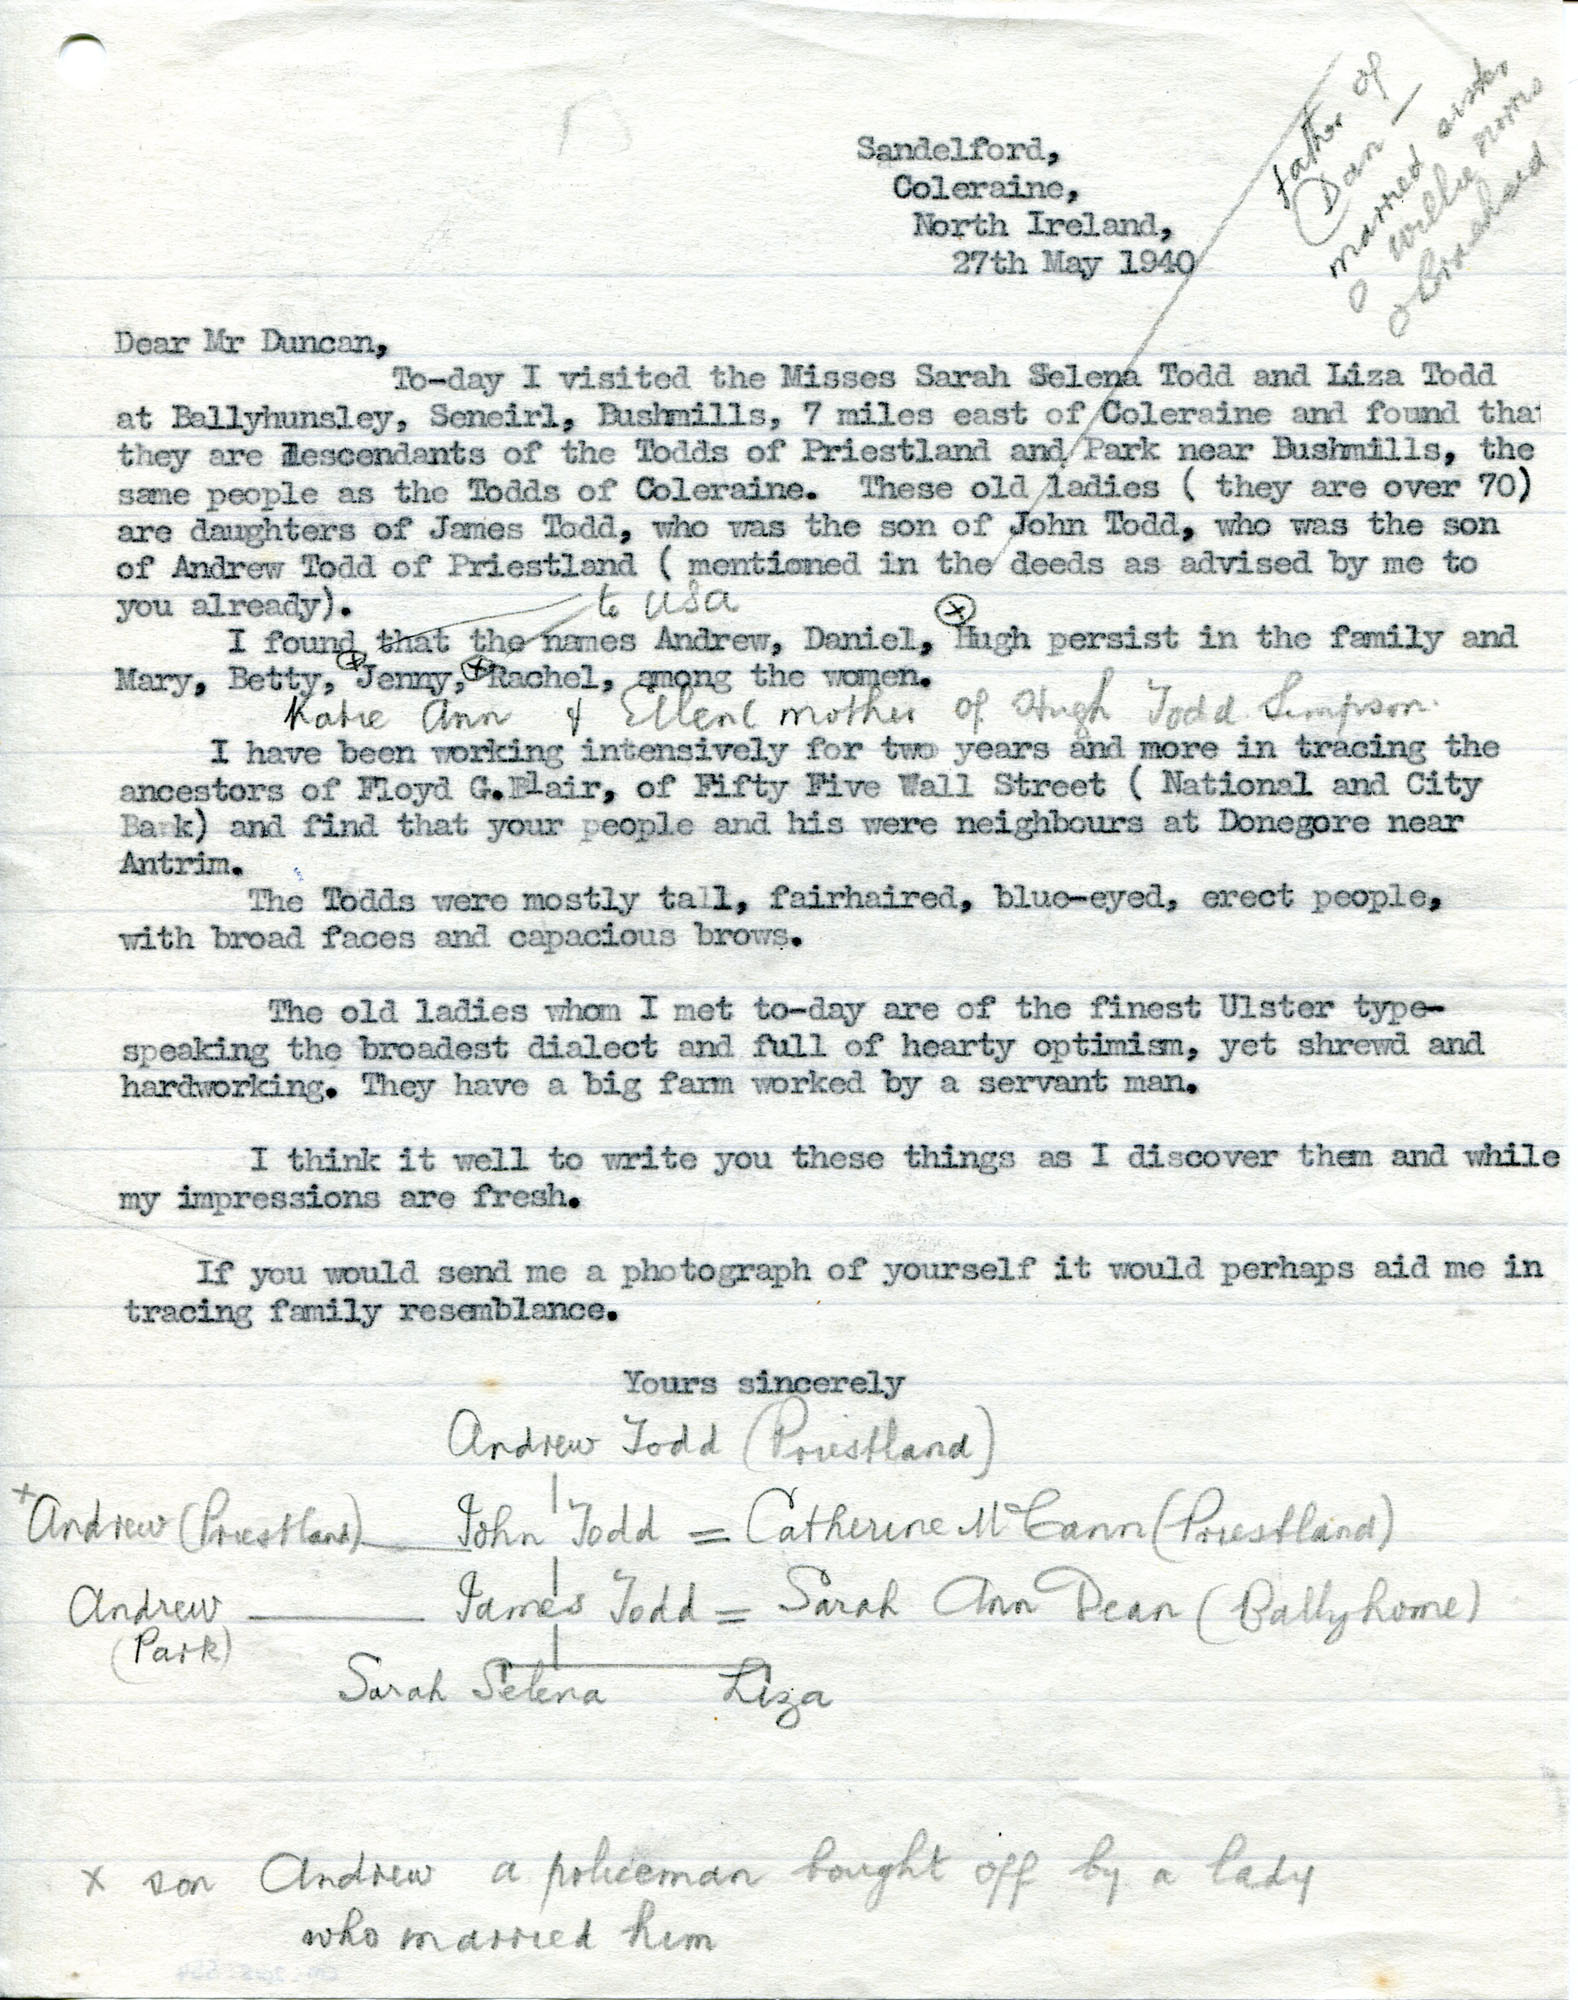 father of
Dan —
married sister
of Willie
of
Sandelford,
Coleraine,
North Ireland,
27th May 1940
Dear Mr Duncan,
To-day I visited the Misses Sarah Selena Todd and Liza Todd
at Ballyhunsley, Seneirl, Bushmills, 7 miles east of Coleraine and found that
they are descendants of the Todds of Priestland and Park near Bushmills, the
same people as the Todds of Coleraine. These old ladies ( they are over 70)
are daughters of James Todd, who was the son of John Todd, who was the son
of Andrew Todd of Priestland ( mentioned in the deeds as advised by me to
you already).
to USA
I found that the names Andrew, Daniel, Hugh persist in the family and
Mary, Betty, Jenny, Rachel, among the women.
Katie Ann & Ellen( mother of Hugh Todd Simpson.
I have been working intensively for two years and more in tracing the
ancestors of Floyd G.Blair, of Fifty Five Wall Street ( National and City
Bank) and find that your people and his were neighbours at Donegore near
Antrim.
The Todds were mostly tall, fairhaired, blue-eyed, erect people,
with broad faces and capacious brows.
The old ladies whom I met to-day are of the finest Ulster type-
speaking the broadest dialect and full of hearty optimism, yet shrewd and
hardworking. They have a big farm worked by a servant man.
I think it well to write you these things as I discover them and while
my impressions are fresh.
If you would send me a photograph of yourself it would perhaps aid me in
tracing family resemblance.
Yours sincerely
Andrew Todd (Priestland)
+ Andrew (Priestland) — John Todd = Catherine McCann (Priestland)
Andrew — James Todd = Sarah Ann Dean (Ballyhome)
(Park)
Sarah Selena Liza
x son Andrew a policeman bought off by a lady
who married him